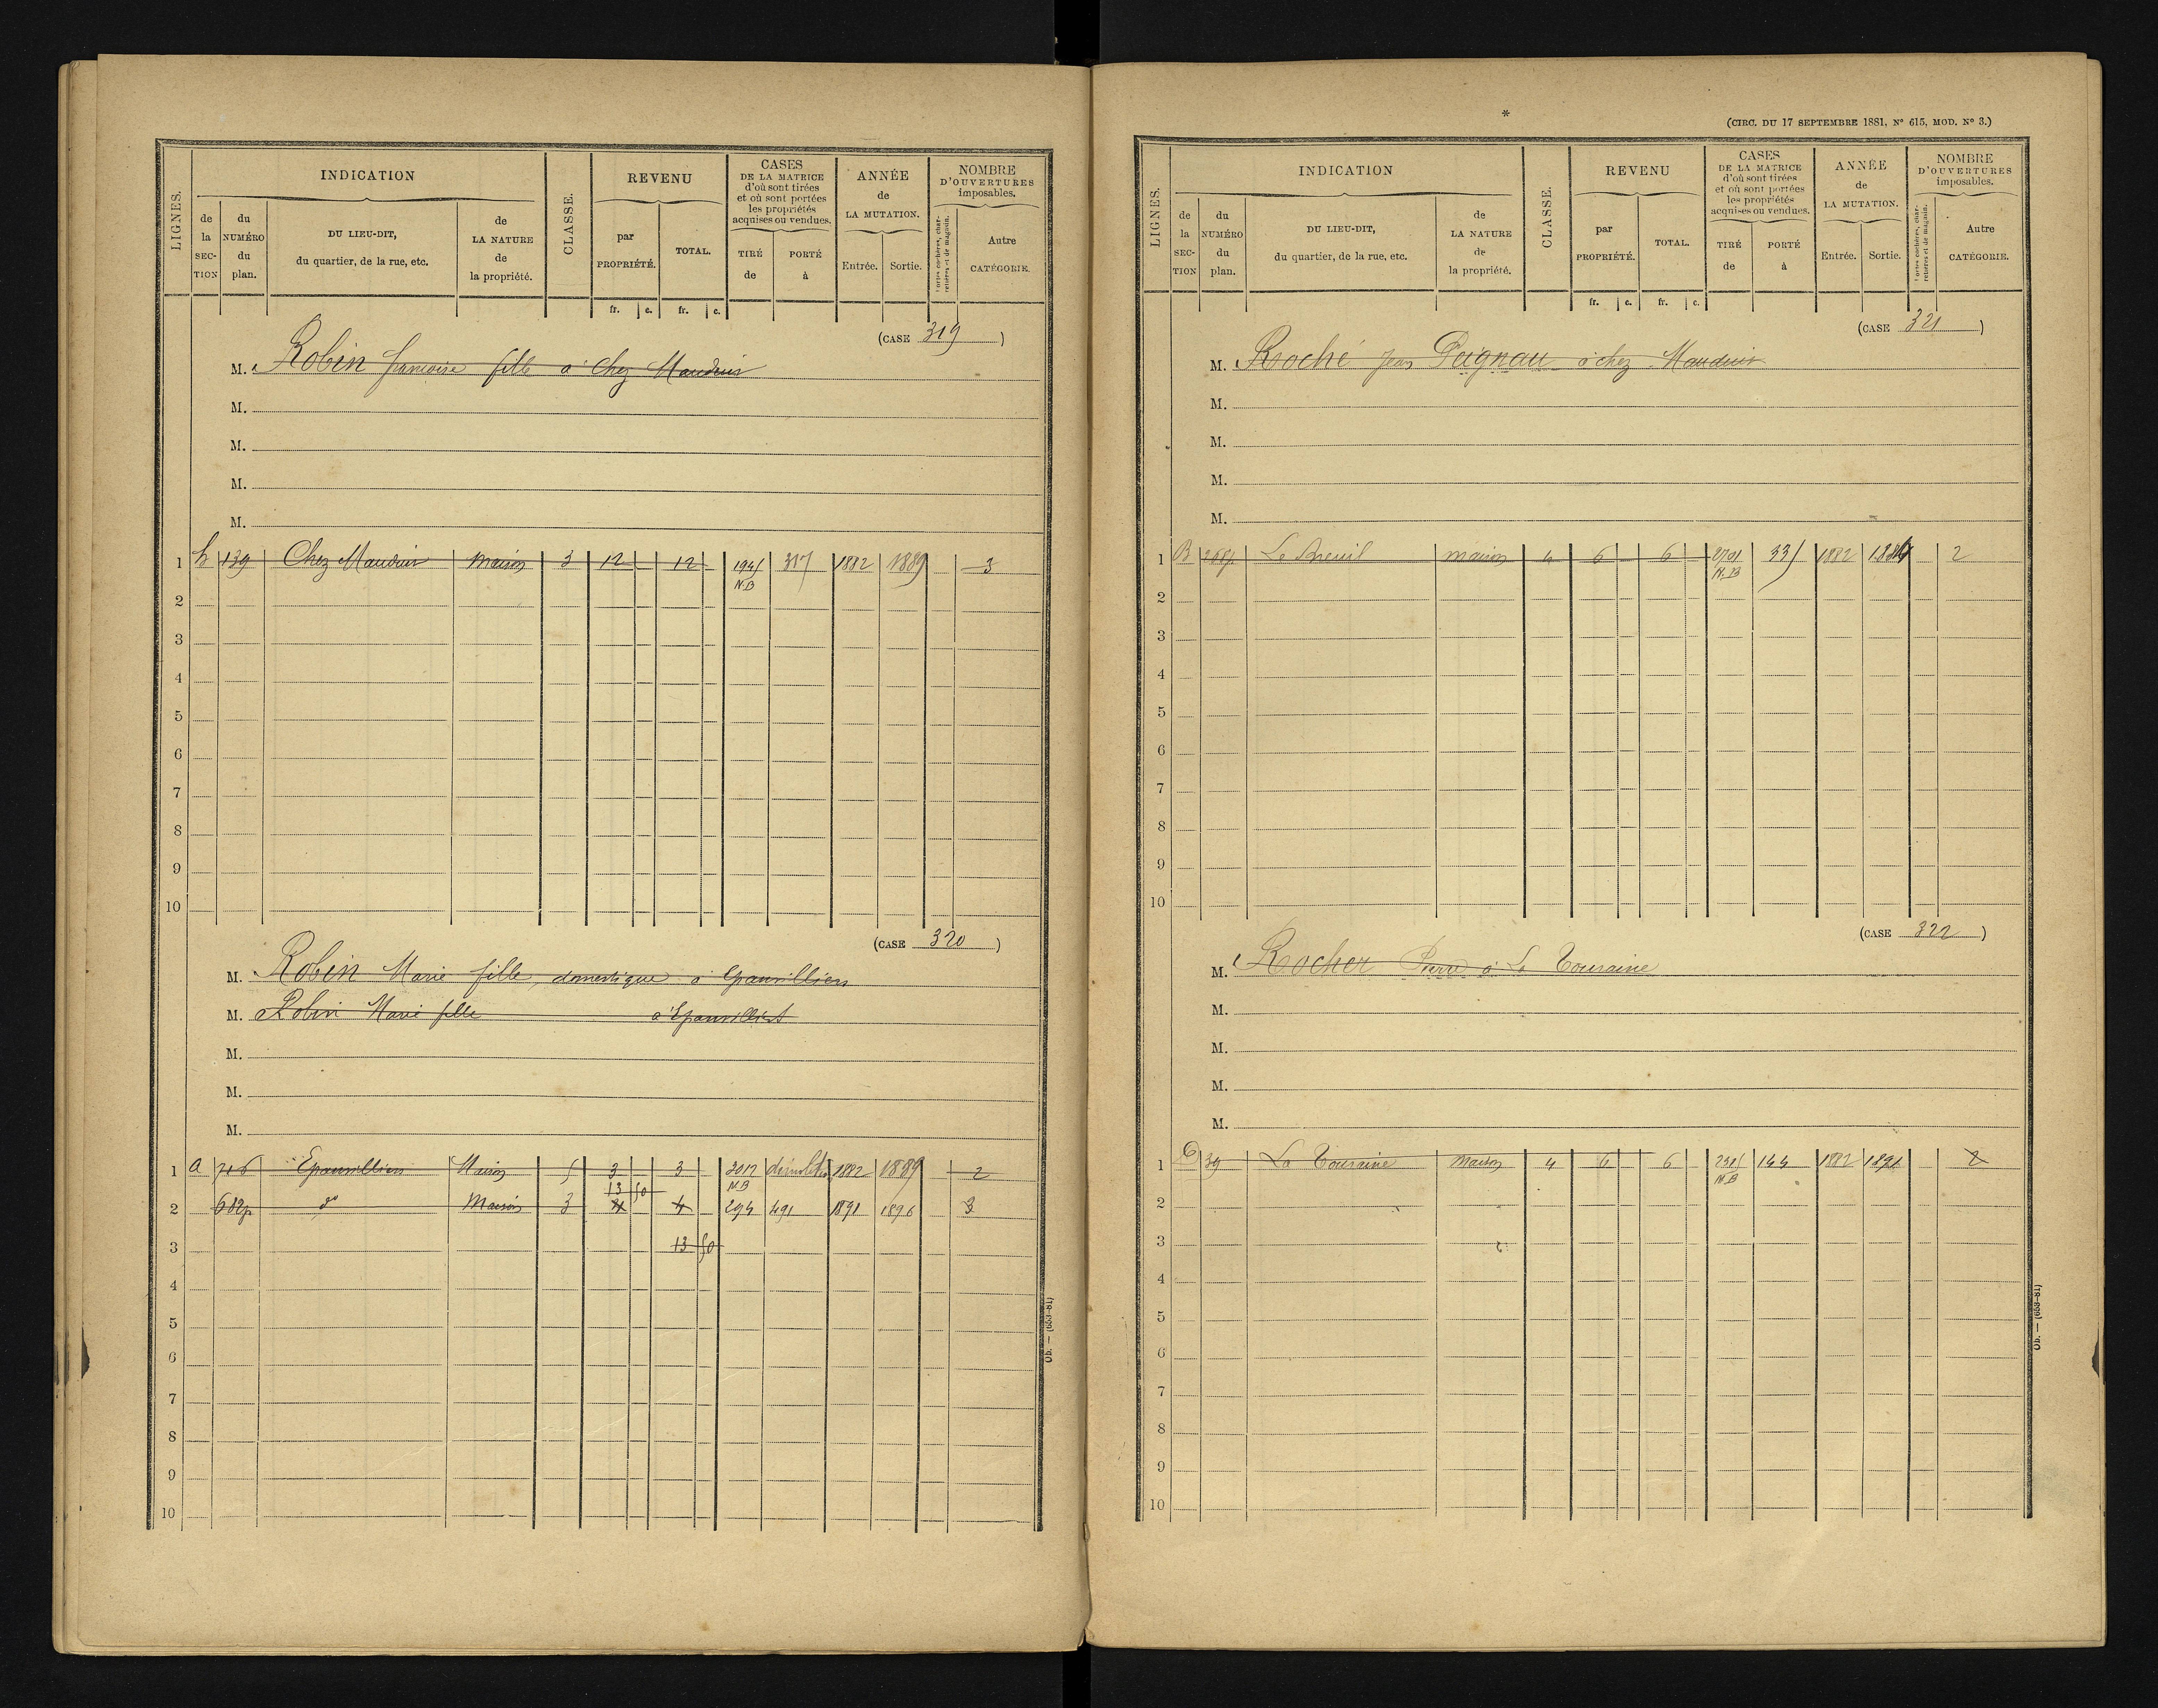 LIGNES.
INDICATION
de la SECTION
du NUMÉRO du plan.
DU LIEU-DIT, du quartier, de la rue, etc.
de LA NATURE de la propriété.
CLASSE.
REVENU
par PROPRIÉTÉ.
TOTAL.
fr. c. fr. c.
CASES DE LA MATRICE d'où sont tirées et où sont portées les propriétés acquises ou vendues.
TIRÉ de
PORTÉ à
ANNÉE de LA MUTATION.
Entrée. Sortie.
NOMBRE D'OUVERTURES imposables.
Portes cochères, charretières et de magasin.
Autre CATÉGORIE.
(CASE 319)
M. Robin françoise fille à Chez Mauduis
M.
M.
M.
M.
1 h 139 Chez Mauduis Maison 3 12 12 194 317 1882 1889 3
N.B
2
3
4
5
6
7
8
9
10
(CASE 320)
M. Robin Marie fille, domestique à Epanvilliers
M. Robin Marie fille à Epanvilliers
M.
M.
M.
1 a 716 Epanvilliers Maison 5 3 3 2017 1882 1889 2
N.B
13 50
2 682p do Maison 3 4 4 294 491 1891 1896 3
3 13 50
4
5
6
7
8
9
10
Ob. — (653-81)
*
(CIRC. DU 17 SEPTEMBRE 1881, No 615, MOD. No 3.)
LIGNES.
INDICATION
de la SECTION
du NUMÉRO du plan.
DU LIEU-DIT, du quartier, de la rue, etc.
de LA NATURE de la propriété.
CLASSE.
REVENU
par PROPRIÉTÉ.
TOTAL.
fr. c. fr. c.
CASES DE LA MATRICE d'où sont tirées et où sont portées les propriétés acquises ou vendues.
TIRÉ de
PORTÉ à
ANNÉE de LA MUTATION.
Entrée. Sortie.
NOMBRE D'OUVERTURES imposables.
Portes cochères, charretières et de magasin.
Autre CATÉGORIE.
(CASE 321)
M. Roché Jean Peignau à chez Mauduis
M.
M.
M.
M.
1 B Le Breuil maison 4 6 6 1882 2
N.B
2
3
4
5
6
7
8
9
10
(CASE 322)
M. Rocher Pierre à La Touraine
M.
M.
M.
M.
1 39 La Touraine maison 4 6 6 144 1882 1891 2
N.B
2
3
4
5
6
7
8
9
10
Ob. — (653-81)